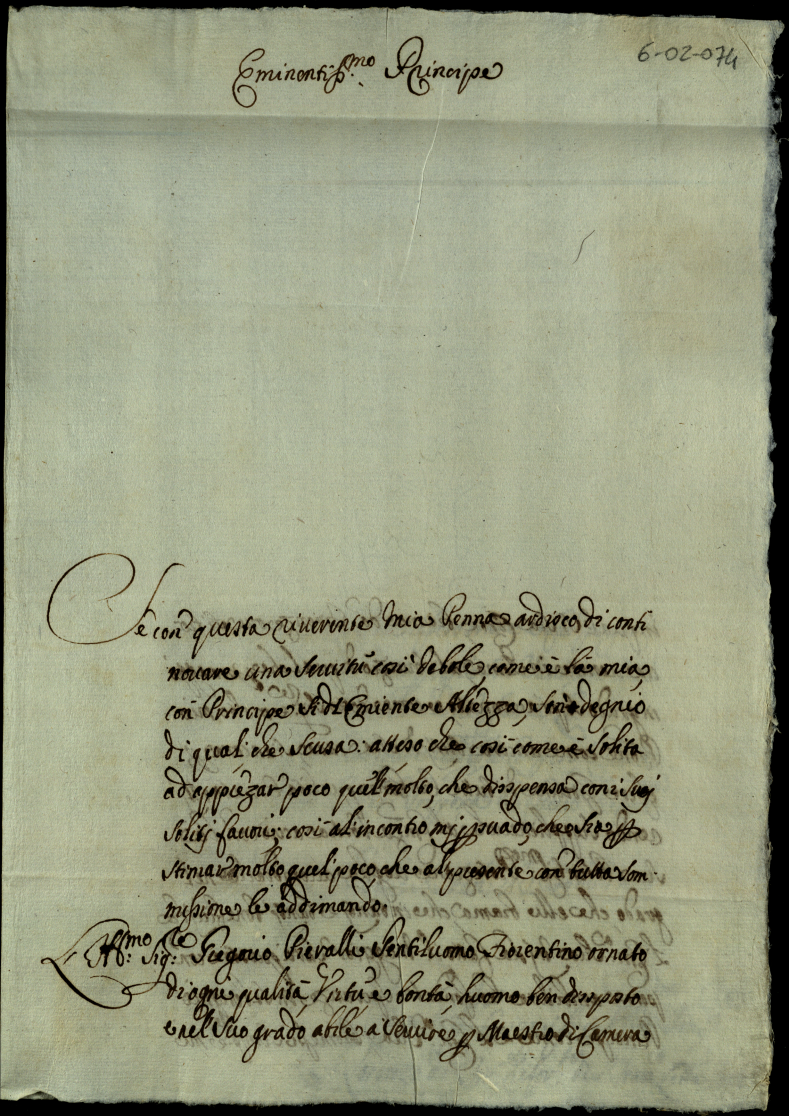 6-02-074
Eminentiss.mo Principe
Se con questa riverente mia Penna ardisco di conti
novare una servitù così debole, come è la mia,
con Principe di Emiente Altezza, son degnio
di qual che scusa: atteso che così come è solita
ad appiezar poco quel molto, che disspensa con i suoj
solitj favori; così al incontro mj psuado, che sia p
stimar molto quel poco, che al presente con tutta som
missione le addimando.
L'Ill.mo Sig.re Gregorio Pieralli Gentiluomo Fiorentino ornato
di ogni qualità Virtù e bontà, huomo ben dissposto
e nel suo grado abile a servire p Maestro di Camera